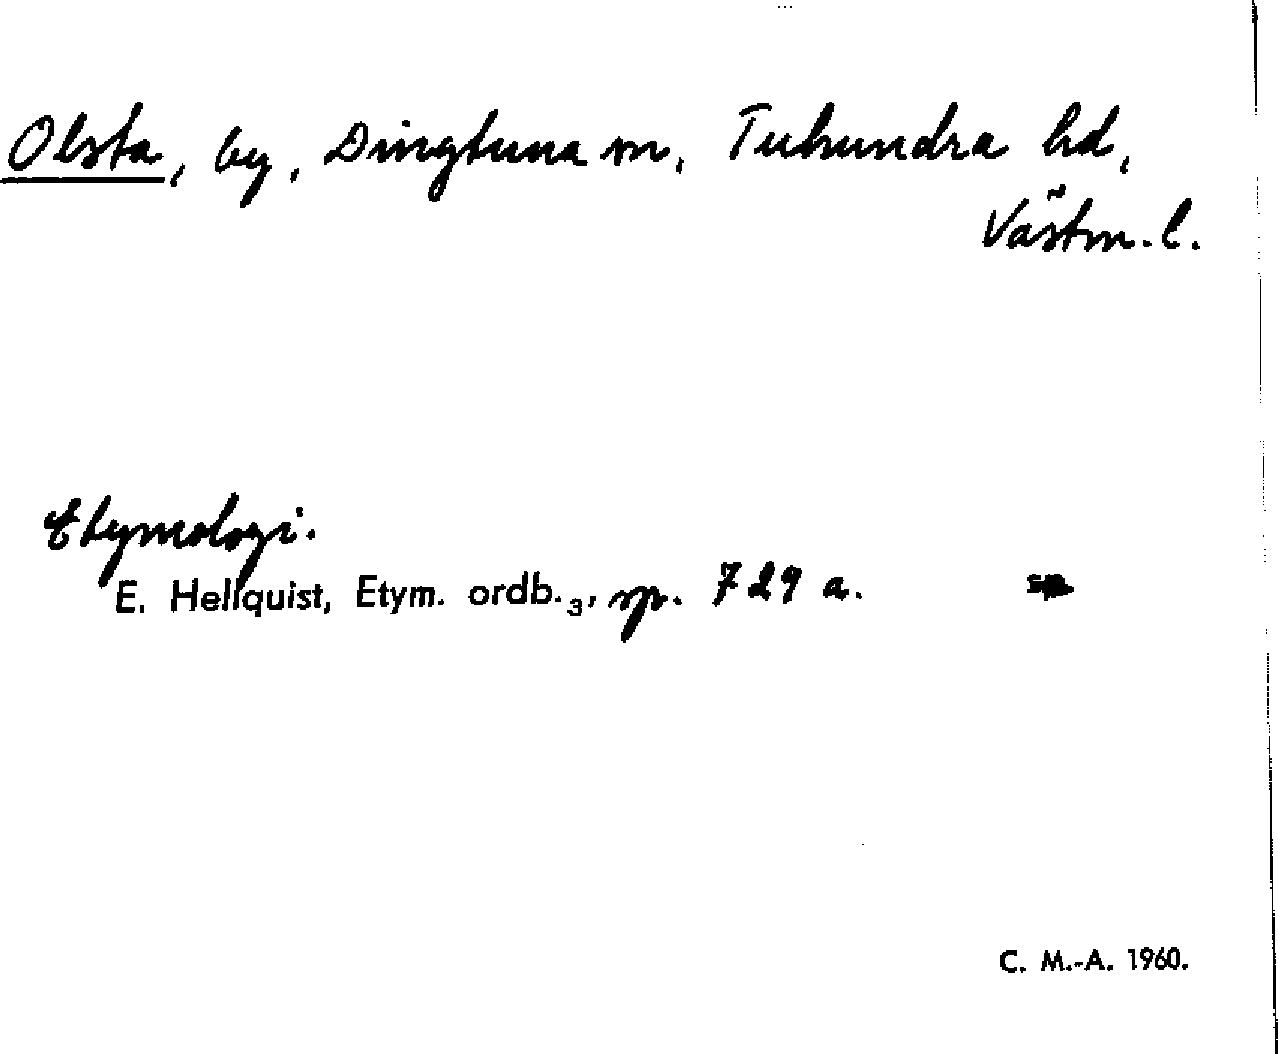 Olsta, by, Dingtuna sn, Tuhundra hd,
Västm. l.
Etymologi.
E. Hellquist, Etym. ordb.3, sp. 729 a.
C. M.-A. 1960.